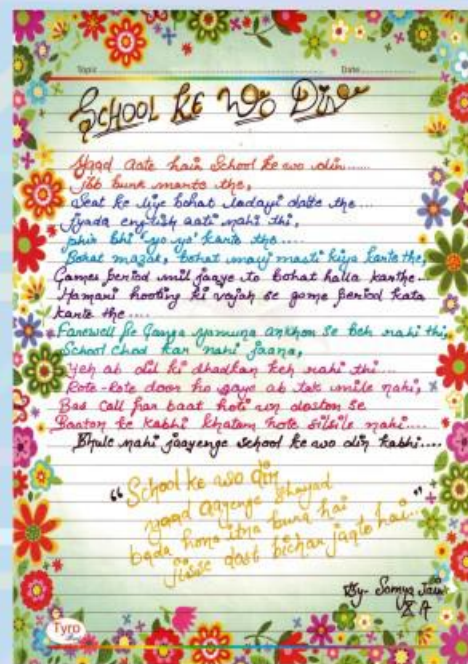 Topic Date
SCHOOL KE WO DIN
Yaad aate hain School ke wo din......
jab bunk marte the,
Seat ke liye bohat ladayi datte the...
Jyada english aati nahi thi,
phir bhi "yo yo" karte the....
Bohat mazak, bohat mauj masti kiya karte the,
Games period mil jaaye to bohat halla karthe..
Hamari hooting ki vajah se game period kata
karte the....
Farewell pe Ganga yamuna ankhon se beh rahi thi,
School chod kar nahi jaana,
Yeh ab dil ki dhadkan keh rahi thi...
Rote-Rote door ho gaye ab tak mile nahi,
Bas call par baat hoti un doston se
Baaton ke kabhi khatam hote silsile nahi....
Bhule nahi jaayenge school ke wo din kabhi....
"School ke wo din
yaad aayenge shayad
bada hona itna bura hai
jisse dost bichar jaate hai..."
By- Somya Jain
X A
Tyro